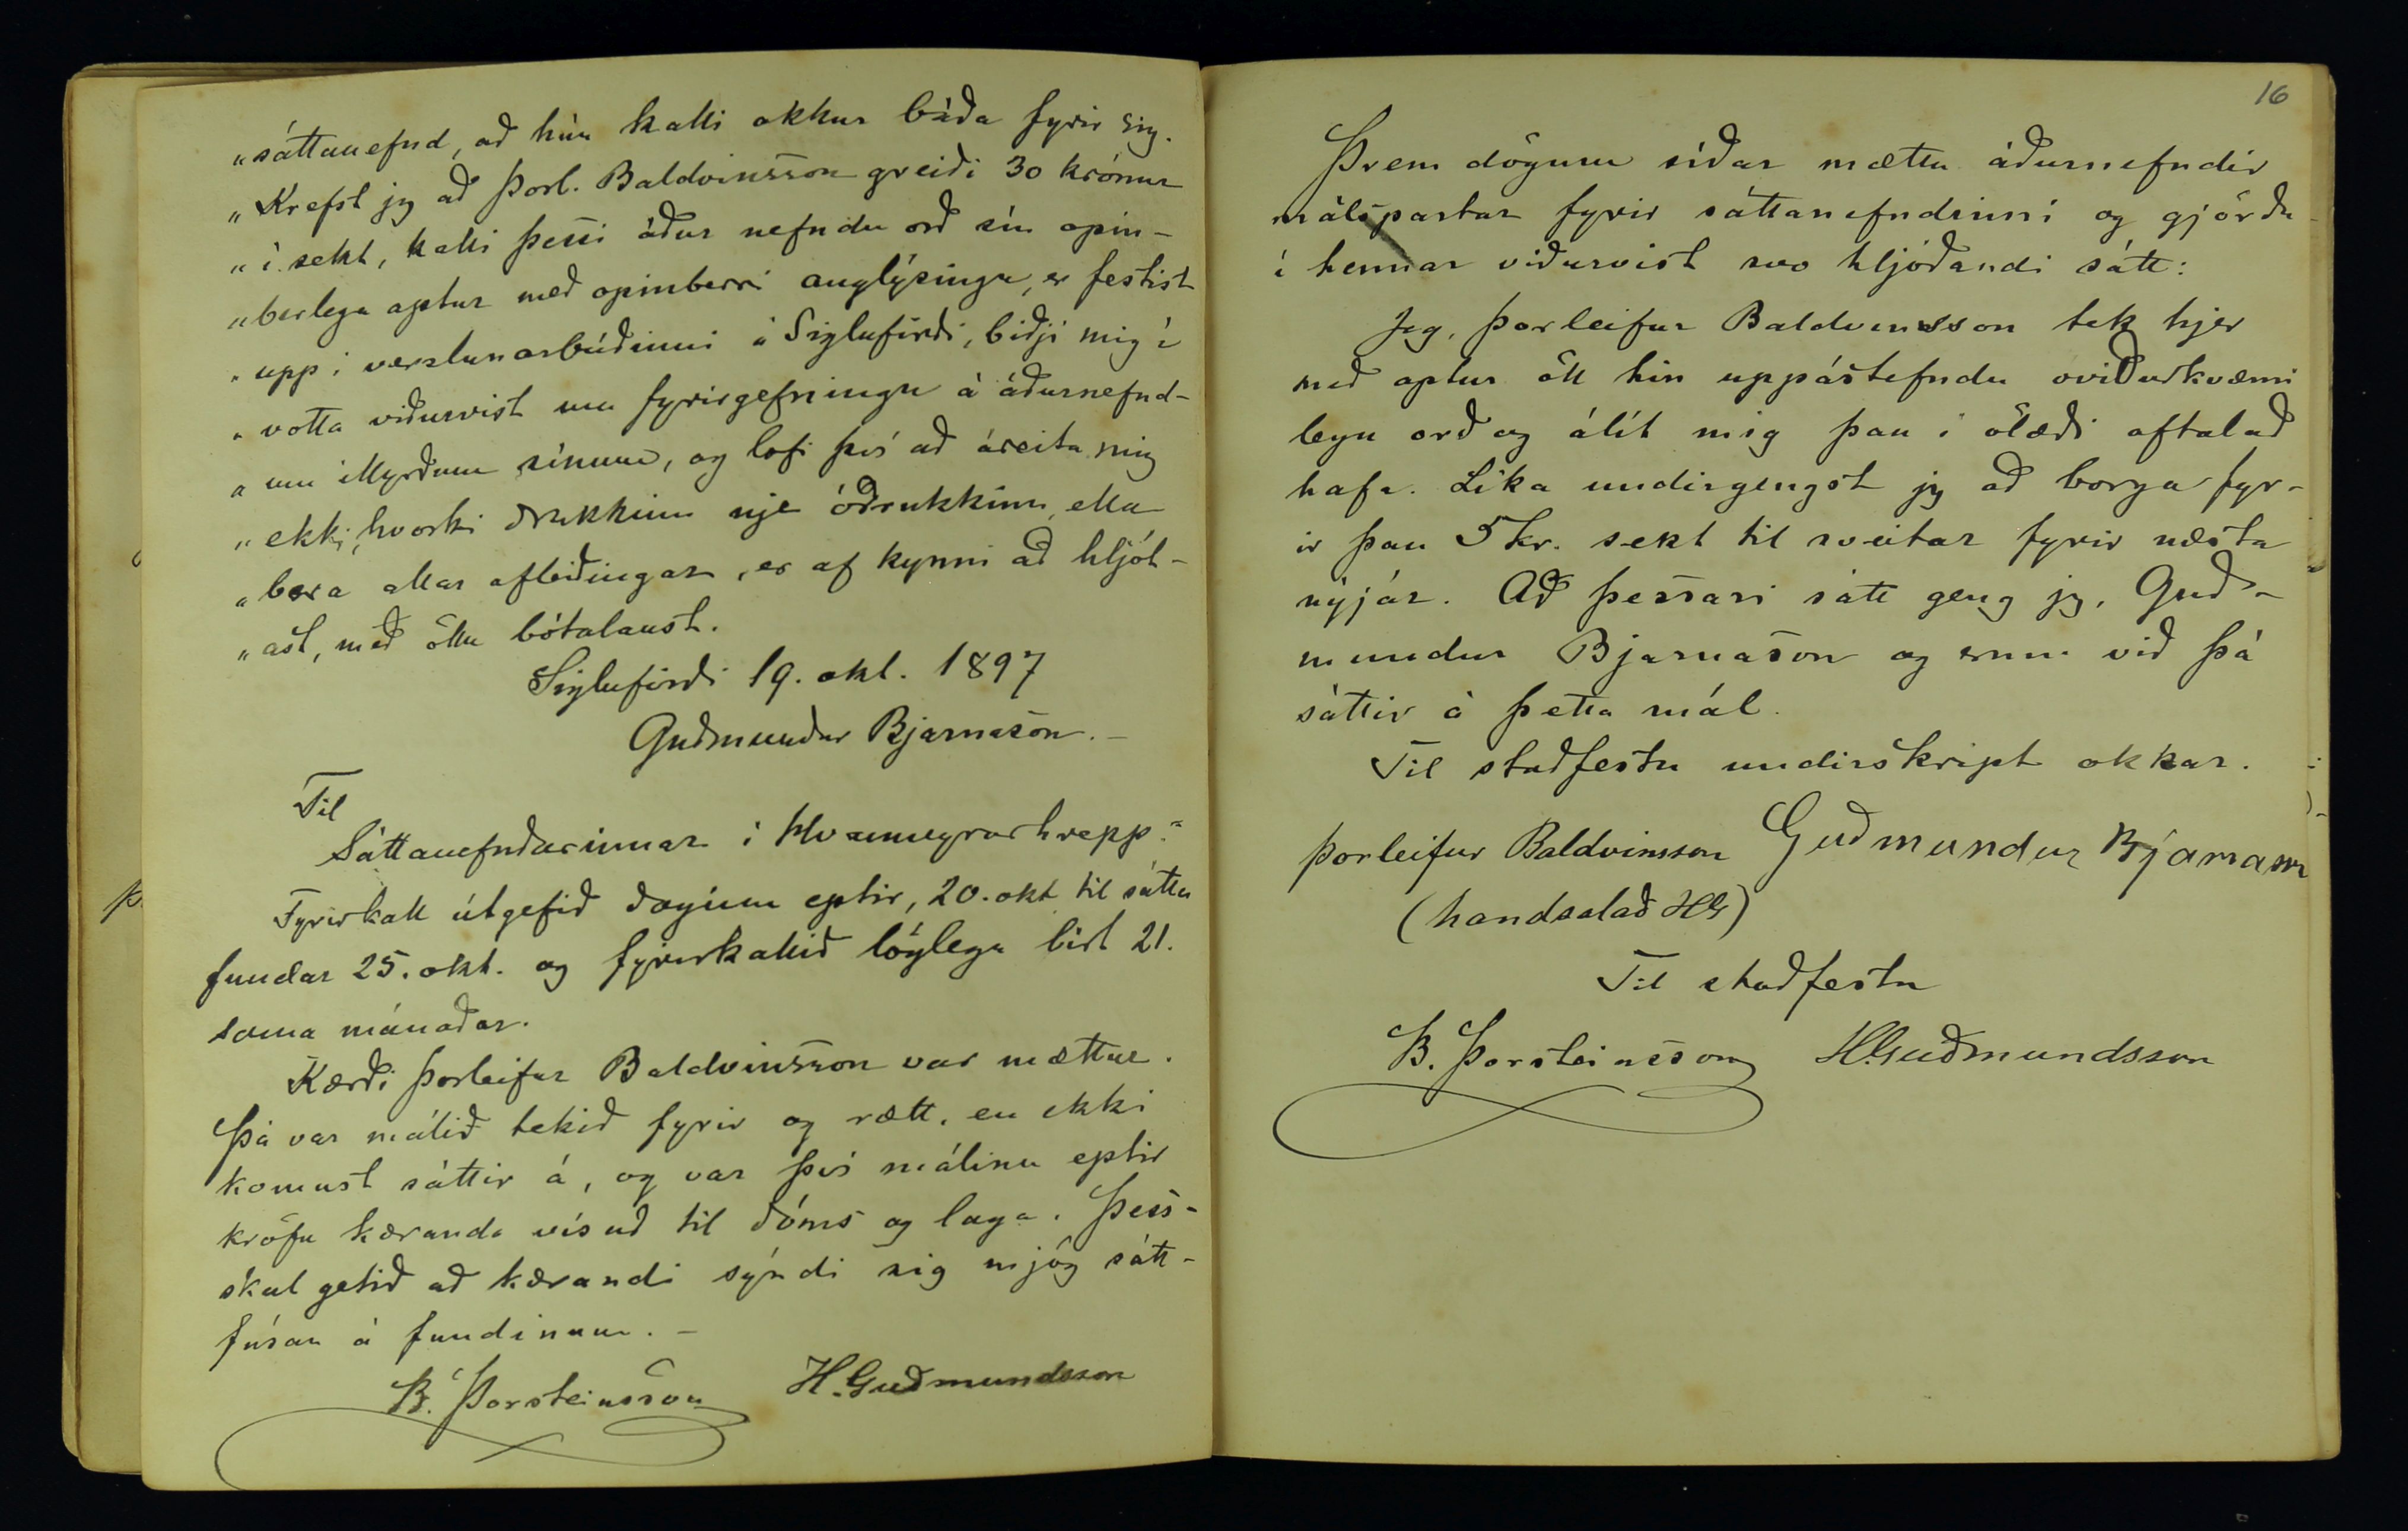 „sáttanefnd, að hún kalli okkur báða fyrir sig.
„Krefst jeg að Þorl. Baldvinsson greiði 30 krónur
„í sekt, kalli þessi áður nefndu orð sín opin-
„berlega aptur með opinberri auglýsingu, er festist
„upp í verslunarbúðinni á Siglufirði, biðji mig í
„votta viðurvist um fyrirgefningu á áðurnefnd-
„um illyrðum sínum, og lofi því að áreita mig
„ekki, hvorki drukkinn nje ódrukkinn, ella
„bera allar afleiðingar, er af kynni að hljót-
„ast, með öllu bótalaust.
Siglufirði 19. okt. 1897
Guðmundur Bjarnason.-
Til
Sáttanefndarinnar í Hvanneyrarhrepp."
Fyrirkall útgefið daginn eptir, 20. okt til sátta
fundar 25. okt. og fyrirkallið löglega birt 21.
sama mánaðar.
Kærði Þorleifur Baldvinsson var mættur.
Þá var málið tekið fyrir og rætt, en ekki
komust sáttir á, og var því málinu eptir
kröfu kæranda vísað til dóms og laga. Þess-
skal getið að kærandi sýndi sig mjög sátt-
fúsan á fundinum.-
B. Þorsteinsson H. Guðmundsson
16
Þrem dögum síðar mættu áðurnefndir
málspartar fyrir sáttanefndinni og gjörðu
í hennar viðurvist svo hljóðandi sátt:
Jeg, Þorleifur Baldvinsson tek hjer
með aptur öll hin uppástefndu óviðurkvæmi
legu orð og álít mig þau í ölæði aftalað
hafa. Líka undirgengst jeg að borga fyr-
ir þau 5 kr. sekt til sveitar fyrir næsta
nýjár. Að þessari sátt geng jeg, Guð-
mundur Bjarnason og erum við þá
sáttir á þetta mál.
Til staðfestu undirskript okkar.
Þorleifur Baldvinsson Guðmundur Bjarnason
(handsalað HG)
Til staðfestu
B. Þorsteinsson H.Guðmundsson